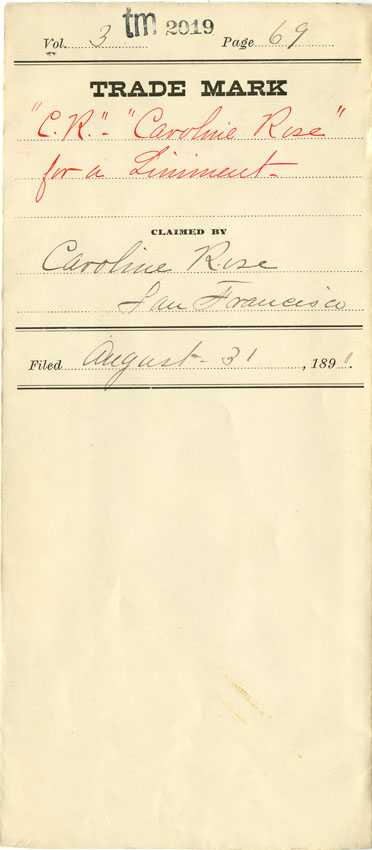 Vol. 3 tm 2019 Page 69
TRADE MARK
"C.R."- "Caroline Rose"
for a Liniment-
CLAIMED BY
Caroline Rose
San Francisco
Filed August- 31 , 1891.